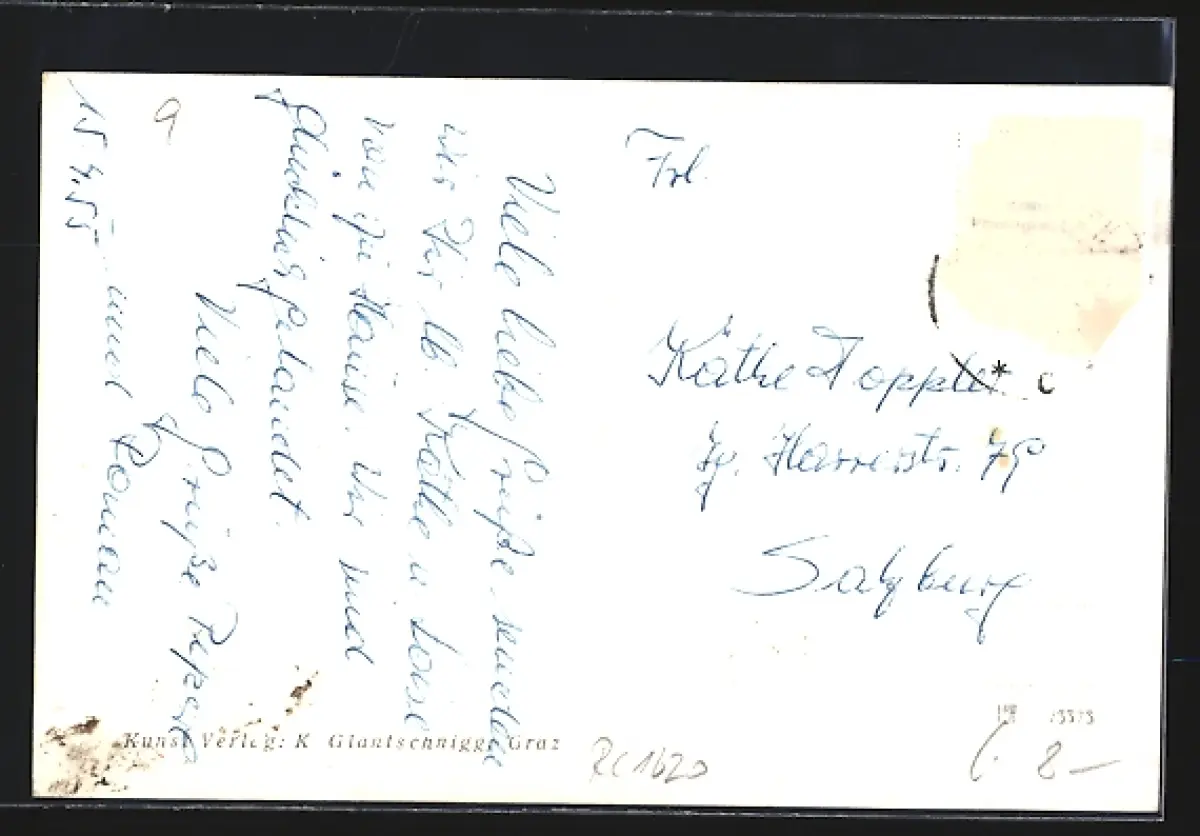 Viele liebe Grüße senden
wir Dir lb. Käthe u Louise
von zu Hause. Wir sind
glücklich gelandet.
Viele Grüße Peperl
und Roman
15.4.55
9
Frl.
Käthe Toppler
Ig. Harrerstr. 79
Salzburg
Kunst Verlag: K Glantschnigg Graz
RC1620
2 —